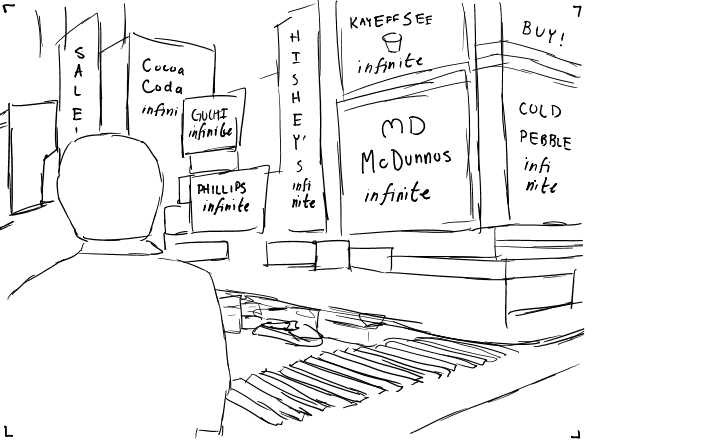 SALE!
Cocoa
Coda
infini
GUCHI
infinite
PHILLIPS
infinite
HISHEY'S
infi
nite
KAYEFFSEE
infinite
MD
McDunnus
infinite
BUY!
COLD
PEBBLE
infi
nite